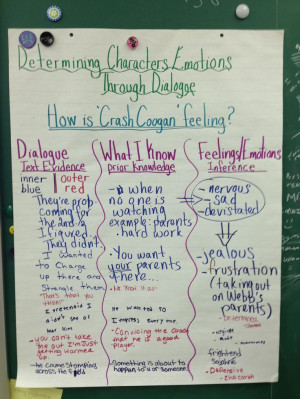 Determining Characters Emotions
Through Dialogue
How is "Crash Coogan" feeling?
Dialogue
Text Evidence
inner | outer
blue | red
They're prob.
coming for
the 2nd ½
I figured.
They didn't.
I wanted
to charge
up there and
Strangle them.
"That's that you
I pretended I
didn't see or
hear him
-you can't take
me out I'm Just
getting warmed
up.
-he came stomping
across the
What I Know
prior Knowledge
- when
no one is
watching
example: parents
• hard work
• You want
your parents
there...
He wanted to
Impress every one.
- Convincing the coach
that he is a good
player.
- something is about to
happen to someone.
Feelings/Emotions
Inference
- nervous
- sad
- devistated
- jealous
- frustration
(taking out
on Webb's
parents)
frightend
- Defensive